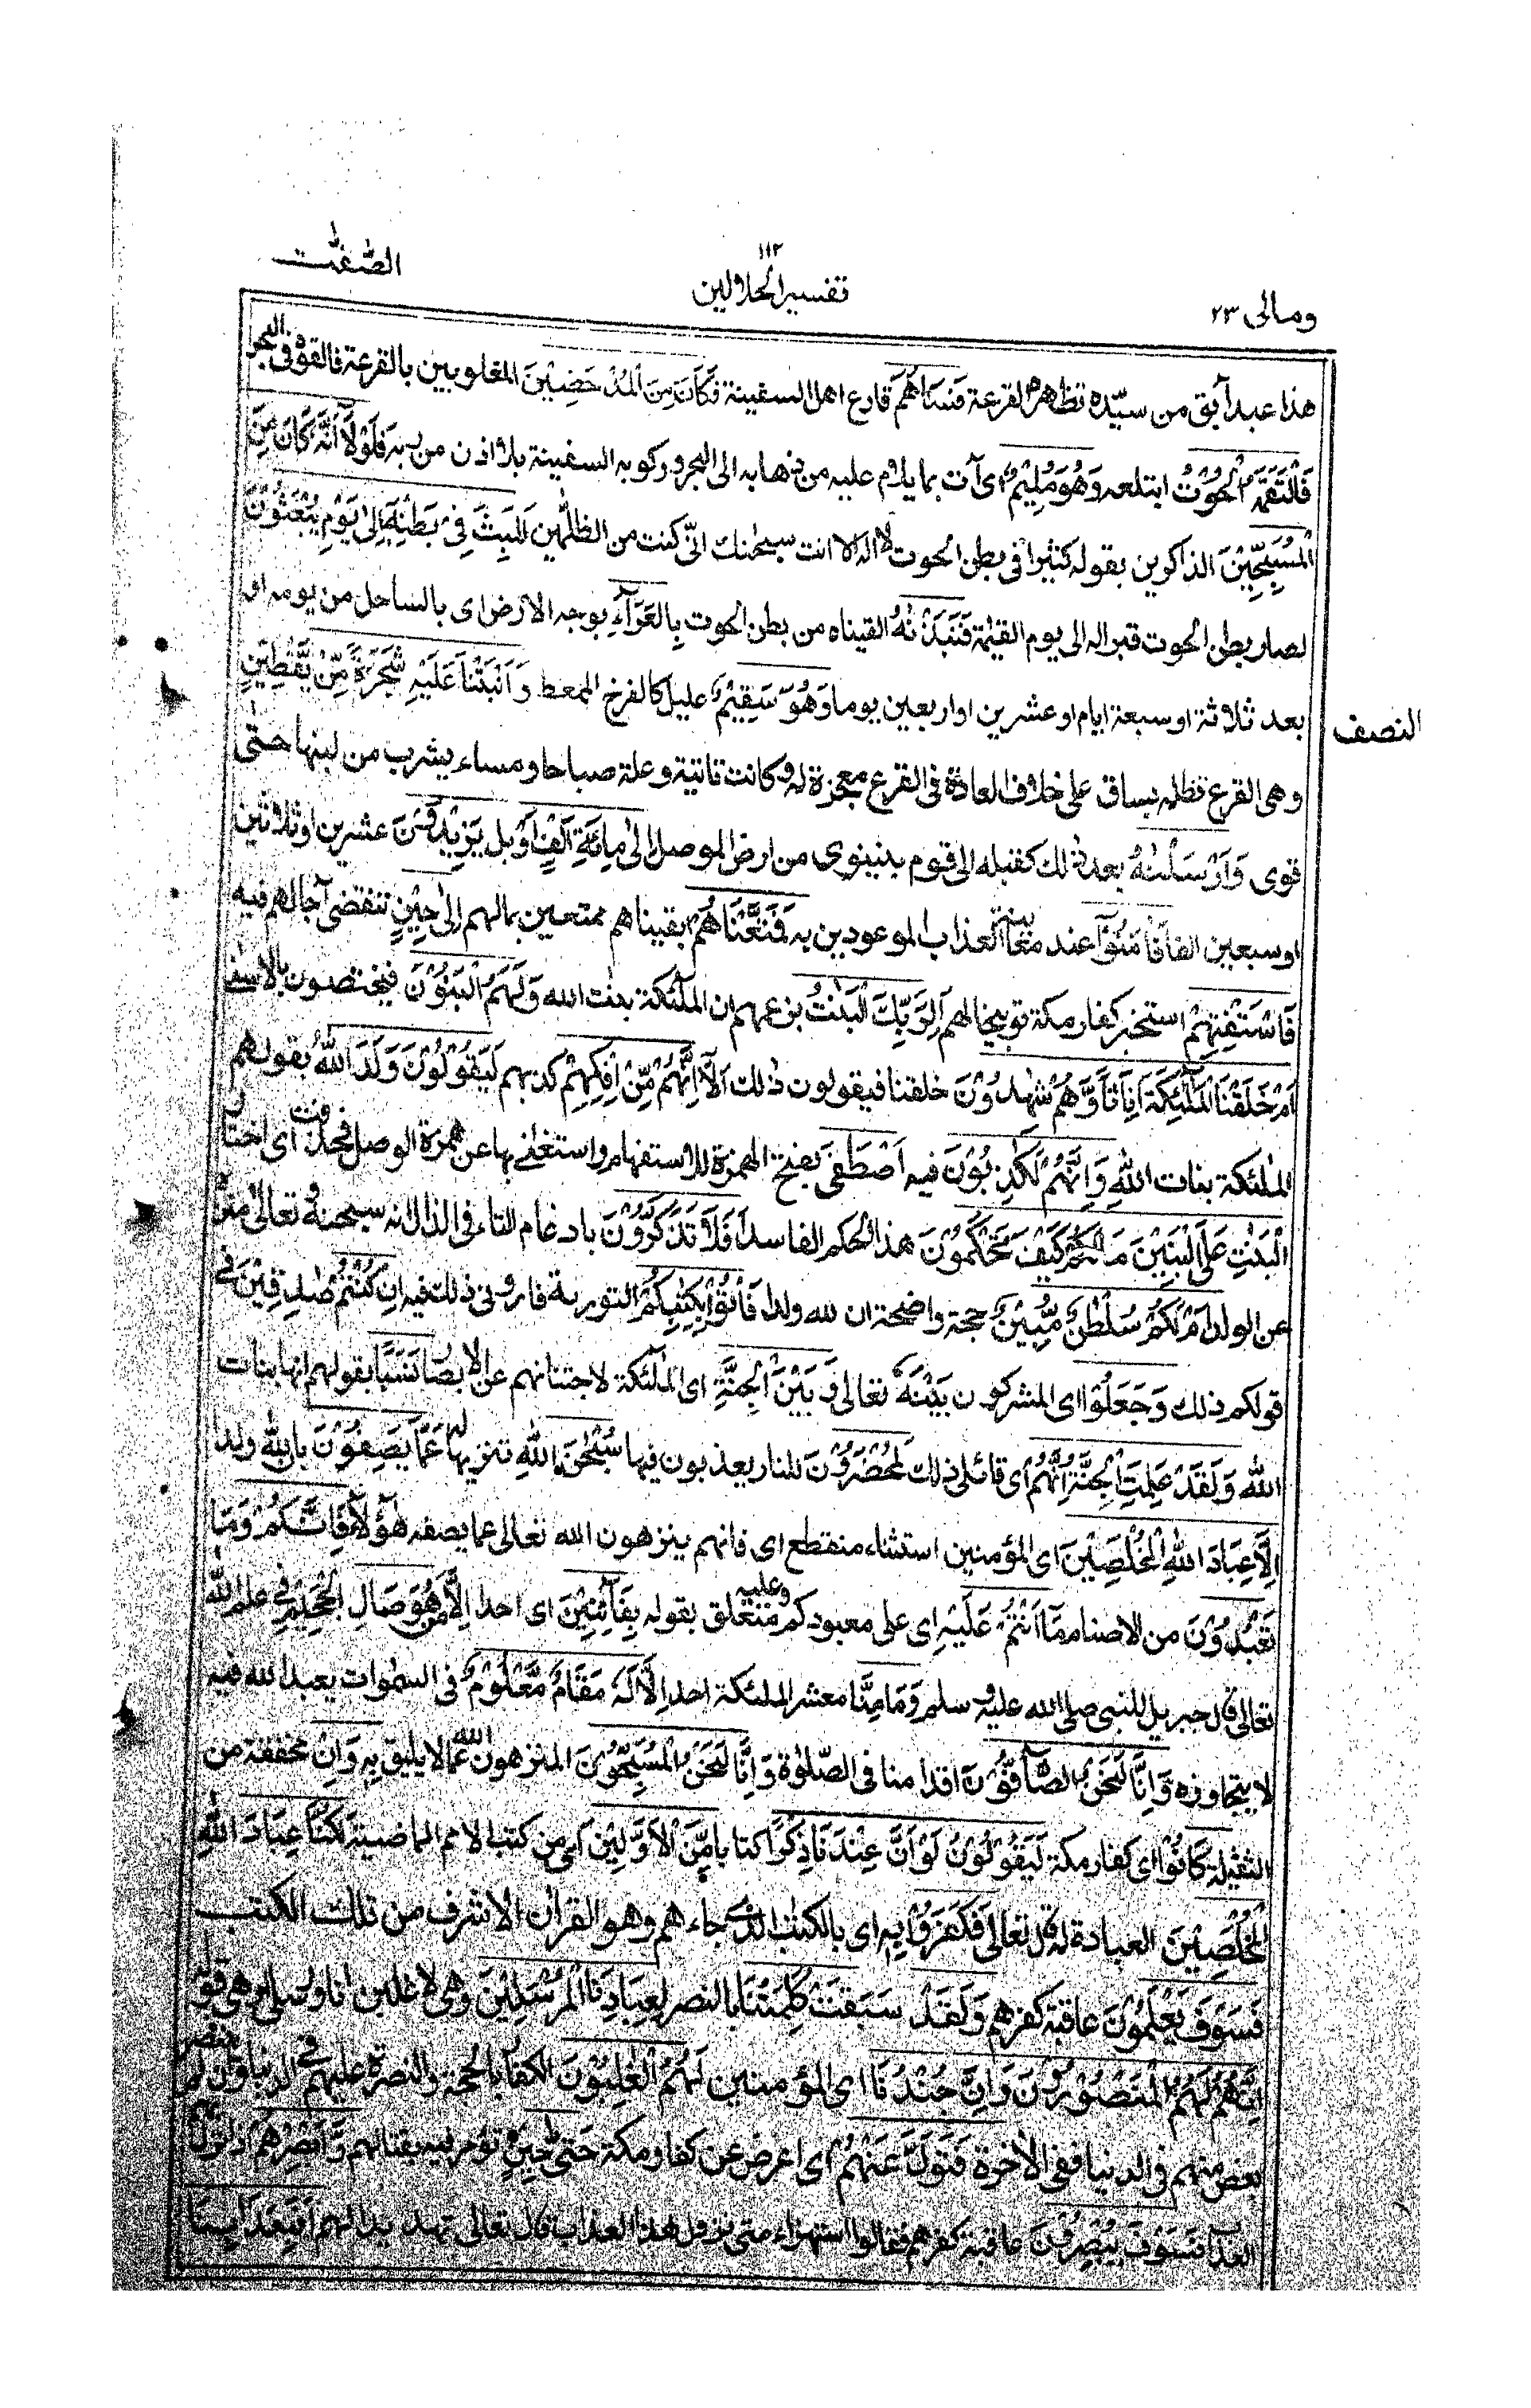 ١١٢
ومالى ٢٣ تفسير الجلالين الصّٰفّٰت
هذا عبد آبق من سيّده تظهره القرعة فَسَاهَمَ قارع اهل السفينة فَكَانَ مِنَ الْمُدْحَضِيْنَ المغلوبين بالقرعة فالقوه فى البحر
فَالْتَقَمَهُ الْحُوْتُ ابتلعه وَهُوَ مُلِيْمٌ اى آت بما يلام عليه من ذهابه الى البحر وركوبه السفينة بلا اذن من ربه فَلَوْلَآ اَنَّهٗ كَانَ مِنَ
الْمُسَبِّحِيْنَ الذاكرين بقوله كثيرا فى بطن الحوت لا اله الا انت سبحٰنك انى كنت من الظلمين لَلَبِثَ فِىْ بَطْنِهٖٓ اِلٰى يَوْمِ يُبْعَثُوْنَ
لصار بطن الحوت قبرا له الى يوم القيٰمة فَنَبَذْنٰهُ القيناه من بطن الحوت بِالْعَرَآءِ بوجه الارض اى بالساحل من يومه او
بعد ثلاثة او سبعة ايام او عشرين او اربعين يوما وَهُوَ سَقِيْمٌ عليل كالفرخ الممعط وَاَنْبَتْنَا عَلَيْهِ شَجَرَةً مِّنْ يَّقْطِيْنٍ
النصف
وهى القرع تظله بساق على خلاف العادة فى القرع معجزة له وكانت تاتية وعلة صباحا ومساء يشرب من لبنها حتى
قوى وَاَرْسَلْنٰهُ بعد ذلك كقبله الى قوم بنينوى من ارض الموصل اِلٰى مِائَةِ اَلْفٍ اَوْ بل يَزِيْدُوْنَ عشرين او ثلاثين
او سبعين الفا فَاٰمَنُوْا عند معاينة العذاب الموعودين به فَمَتَّعْنٰهُمْ ابقيناهم ممتعين بمالهم اِلٰى حِيْنٍ تنقضى آجالهم فيه
فَاسْتَفْتِهِمْ استخبر كفار مكة توبيخا لهم اَلِرَبِّكَ الْبَنٰتُ بزعمهم ان الملٰئكة بنٰت الله وَلَهُمُ الْبَنُوْنَ فيختصون بالاسنى
اَمْ خَلَقْنَا الْمَلٰٓئِكَةَ اِنَاثًا وَّهُمْ شٰهِدُوْنَ خلقنا فيقولون ذلك اَلَآ اِنَّهُمْ مِّنْ اِفْكِهِمْ كذبهم لَيَقُوْلُوْنَ وَلَدَ اللّٰهُ بقولهم
الملٰئكة بنات الله وَاِنَّهُمْ لَكٰذِبُوْنَ فيه اَصْطَفَى بفتح الهمزة للاستفهام واستغنى بها عن همزة الوصل فحذفت اى اختار
الْبَنٰتِ عَلَى الْبَنِيْنَ مَا لَكُمْ كَيْفَ تَحْكُمُوْنَ هذا الحكم الفاسد اَفَلَا تَذَكَّرُوْنَ بادغام التاء فى الذال انه سبحٰنه وتعالى منزه
عن الولد اَمْ لَكُمْ سُلْطٰنٌ مُّبِيْنٌ حجة واضحة ان لله ولدا فَاْتُوْا بِكِتٰبِكُمْ التورية فارونى ذلك فيه اِنْ كُنْتُمْ صٰدِقِيْنَ فى
قولكم ذلك وَجَعَلُوْا اى المشركون بَيْنَهٗ تعالى وَبَيْنَ الْجِنَّةِ اى الملٰئكة لاجتنانهم عن الابصار نَسَبًا بقولهم انها بنات
الله وَلَقَدْ عَلِمَتِ الْجِنَّةُ اِنَّهُمْ اى قائلى ذلك لَمُحْضَرُوْنَ للنار يعذبون فيها سُبْحٰنَ اللّٰهِ تنزيها له عَمَّا يَصِفُوْنَ بان لله ولدا
اِلَّا عِبَادَ اللّٰهِ الْمُخْلَصِيْنَ اى المؤمنين استثناء منقطع اى فانهم ينزهون الله تعالى عما يصفه هؤلاء فَاِنَّكُمْ وَمَا
تَعْبُدُوْنَ من الاصنام مَآ اَنْتُمْ عَلَيْهِ اى على معبودكم وعليه متعلق بقوله بِفَاتِنِيْنَ اى احدا اِلَّا مَنْ هُوَ صَالِ الْجَحِيْمِ فى علم الله
تعالى قال جبريل للنبى صلى الله عليه وسلم وَمَا مِنَّا معشر الملٰئكة احد اِلَّا لَهٗ مَقَامٌ مَّعْلُوْمٌ فى السمٰوات يعبد الله فيه
لا يتجاوزه وَاِنَّا لَنَحْنُ الصَّآفُّوْنَ اقدامنا فى الصلٰوة وَاِنَّا لَنَحْنُ الْمُسَبِّحُوْنَ المنزهون الله عما لا يليق به وَاِنْ مخففة من
الثقيلة كَانُوْا اى كفار مكة لَيَقُوْلُوْنَ لَوْ اَنَّ عِنْدَنَا ذِكْرًا كتابا مِّنَ الْاَوَّلِيْنَ اى من كتب الامم الماضية لَكُنَّا عِبَادَ اللّٰهِ
الْمُخْلَصِيْنَ العبادة له قال تعالى فَكَفَرُوْا بِهٖ اى بالكتٰب الذى جاءهم وهو القرآن الاشرف من تلك الكتب
فَسَوْفَ يَعْلَمُوْنَ عاقبة كفرهم وَلَقَدْ سَبَقَتْ كَلِمَتُنَا بالنصر لِعِبَادِنَا الْمُرْسَلِيْنَ وهى لاغلبن انا ورسلى او هى قوله
اِنَّهُمْ لَهُمُ الْمَنْصُوْرُوْنَ وَاِنَّ جُنْدَنَا اى المؤمنين لَهُمُ الْغٰلِبُوْنَ الكفار بالحجة والنصرة عليهم فى الدنيا وان لم ينتصر
بعض منهم فى الدنيا ففى الاخرة فَتَوَلَّ عَنْهُمْ اى اعرض عن كفار مكة حَتّٰى حِيْنٍ تؤمر فيه بقتالهم وَاَبْصِرْهُمْ اذا نزل بهم
العذاب فَسَوْفَ يُبْصِرُوْنَ عاقبة كفرهم فقالوا استهزاء متى نزول هذا العذاب قال تعالى تهديدا لهم اَفَبِعَذَابِنَا